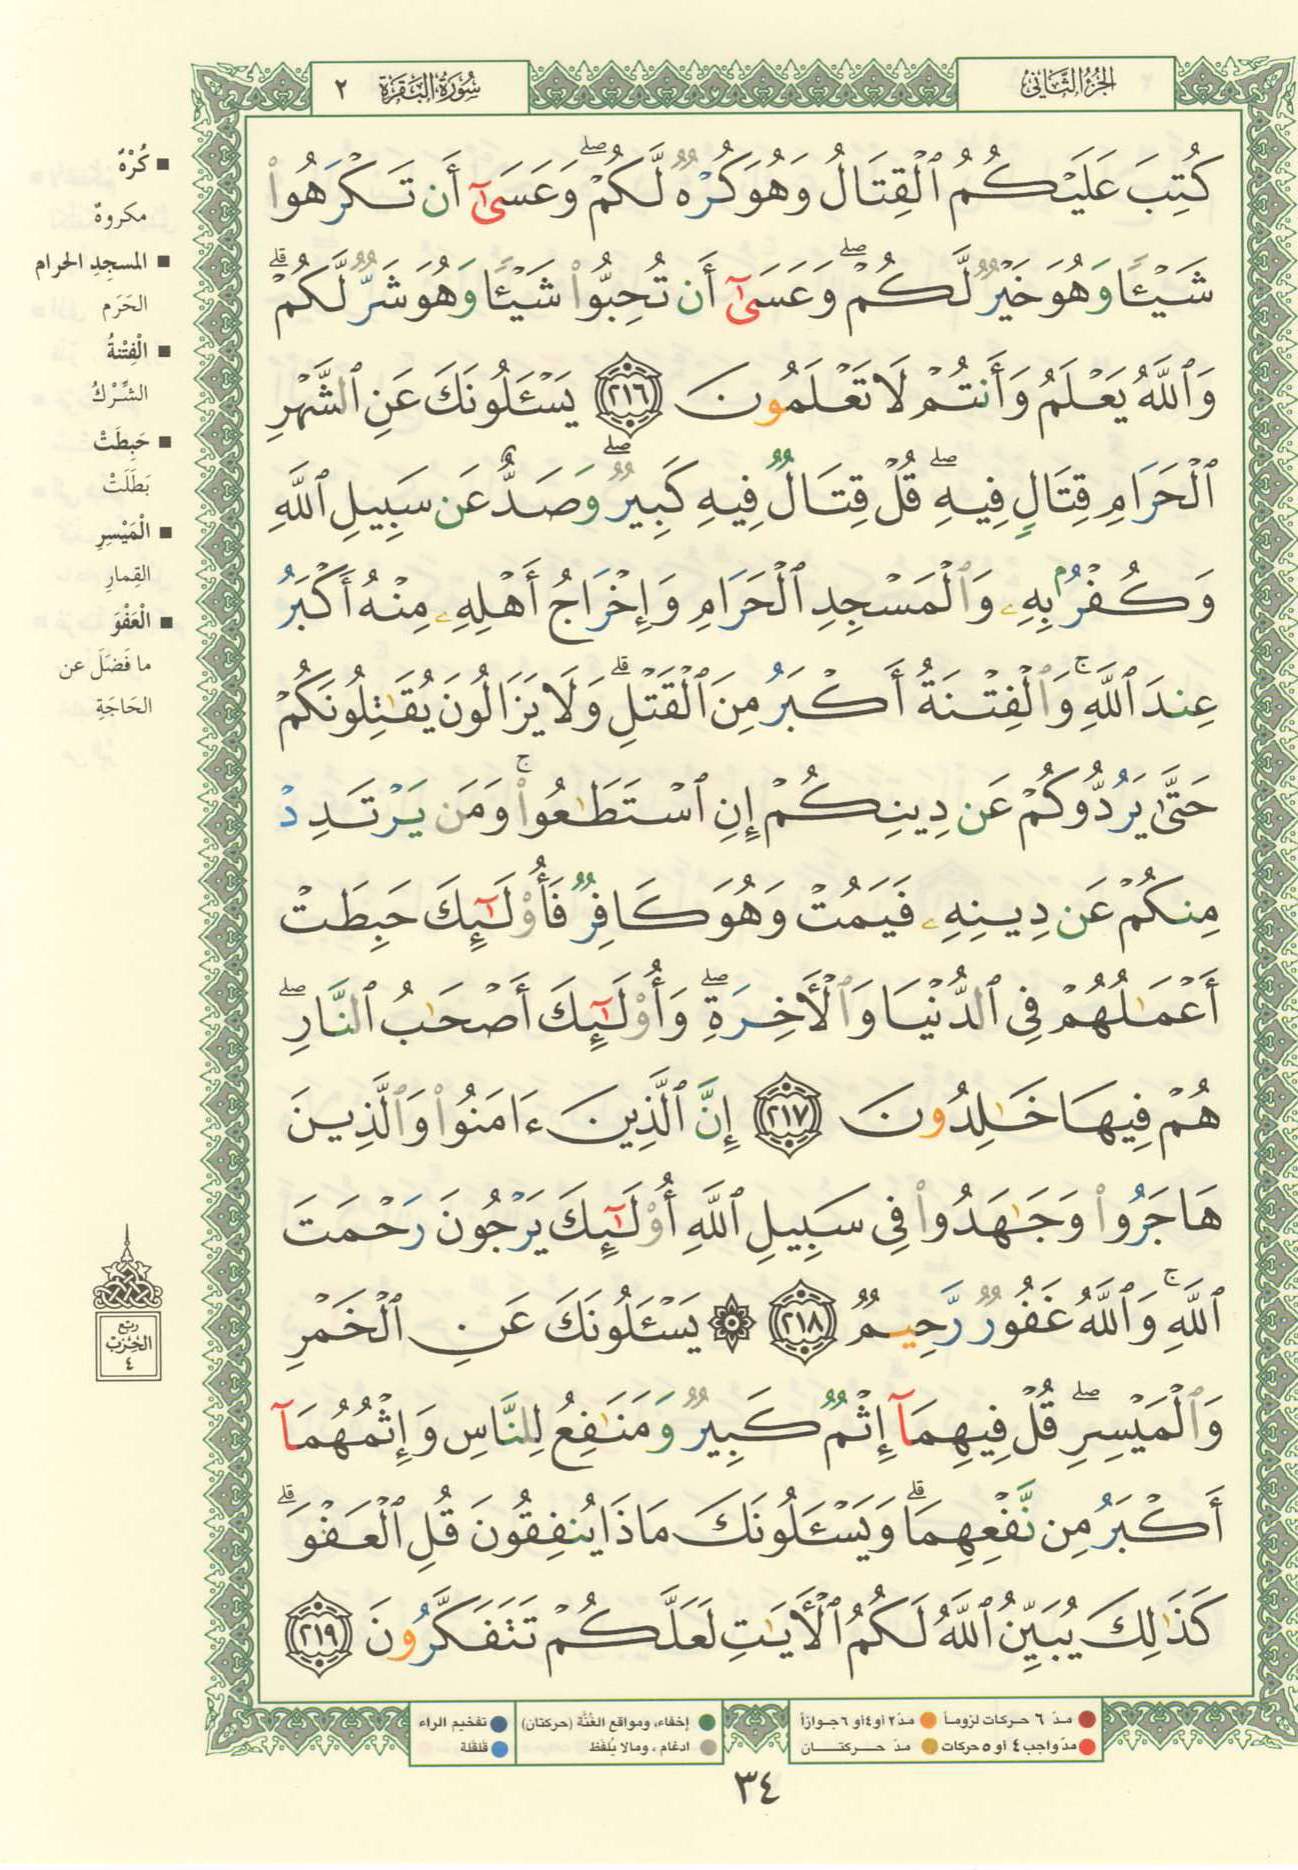 الجزء الثاني
سورة البقرة ٢
كُتِبَ عَلَيْكُمُ ٱلْقِتَالُ وَهُوَ كُرْهٌ لَّكُمْ ۖ وَعَسَىٰٓ أَن تَكْرَهُوا۟
شَيْـًٔا وَهُوَ خَيْرٌ لَّكُمْ ۖ وَعَسَىٰٓ أَن تُحِبُّوا۟ شَيْـًٔا وَهُوَ شَرٌّ لَّكُمْ ۗ
وَٱللَّهُ يَعْلَمُ وَأَنتُمْ لَا تَعْلَمُونَ ٢١٦ يَسْـَٔلُونَكَ عَنِ ٱلشَّهْرِ
ٱلْحَرَامِ قِتَالٍ فِيهِ ۖ قُلْ قِتَالٌ فِيهِ كَبِيرٌ ۖ وَصَدٌّ عَن سَبِيلِ ٱللَّهِ
وَكُفْرٌۢ بِهِۦ وَٱلْمَسْجِدِ ٱلْحَرَامِ وَإِخْرَاجُ أَهْلِهِۦ مِنْهُ أَكْبَرُ
عِندَ ٱللَّهِ ۚ وَٱلْفِتْنَةُ أَكْبَرُ مِنَ ٱلْقَتْلِ ۗ وَلَا يَزَالُونَ يُقَـٰتِلُونَكُمْ
حَتَّىٰ يَرُدُّوكُمْ عَن دِينِكُمْ إِنِ ٱسْتَطَـٰعُوا۟ ۚ وَمَن يَرْتَدِدْ
مِنكُمْ عَن دِينِهِۦ فَيَمُتْ وَهُوَ كَافِرٌ فَأُو۟لَـٰٓئِكَ حَبِطَتْ
أَعْمَـٰلُهُمْ فِى ٱلدُّنْيَا وَٱلْـَٔاخِرَةِ ۖ وَأُو۟لَـٰٓئِكَ أَصْحَـٰبُ ٱلنَّارِ ۖ
هُمْ فِيهَا خَـٰلِدُونَ ٢١٧ إِنَّ ٱلَّذِينَ ءَامَنُوا۟ وَٱلَّذِينَ
هَاجَرُوا۟ وَجَـٰهَدُوا۟ فِى سَبِيلِ ٱللَّهِ أُو۟لَـٰٓئِكَ يَرْجُونَ رَحْمَتَ
ٱللَّهِ ۚ وَٱللَّهُ غَفُورٌ رَّحِيمٌ ٢١٨ ۞ يَسْـَٔلُونَكَ عَنِ ٱلْخَمْرِ
وَٱلْمَيْسِرِ ۖ قُلْ فِيهِمَآ إِثْمٌ كَبِيرٌ وَمَنَـٰفِعُ لِلنَّاسِ وَإِثْمُهُمَآ
أَكْبَرُ مِن نَّفْعِهِمَا ۗ وَيَسْـَٔلُونَكَ مَاذَا يُنفِقُونَ قُلِ ٱلْعَفْوَ ۗ
كَذَٰلِكَ يُبَيِّنُ ٱللَّهُ لَكُمُ ٱلْـَٔايَـٰتِ لَعَلَّكُمْ تَتَفَكَّرُونَ ٢١٩
■ كُرْهٌ
مكروهٌ
■ المسجدِ الحرام
الحَرَم
■ الْفِتْنةُ
الشِّرْكُ
■ حَبِطَتْ
بَطَلَتْ
■ الْمَيْسِرِ
القِمارِ
■ الْعَفْوَ
ما فَضَلَ عن
الحَاجَةِ
ربع
الحزب
٤
مدّ ٦ حركات لزوماً
مدّ ٢ أو ٤ أو ٦ جوازاً
مدّ واجب ٤ أو ٥ حركات
مدّ حركتان
إخفاء، ومواقع الغُنَّة (حركتان)
ادغام، ومالا يُلفَظ
تفخيم الراء
قلقلة
٣٤